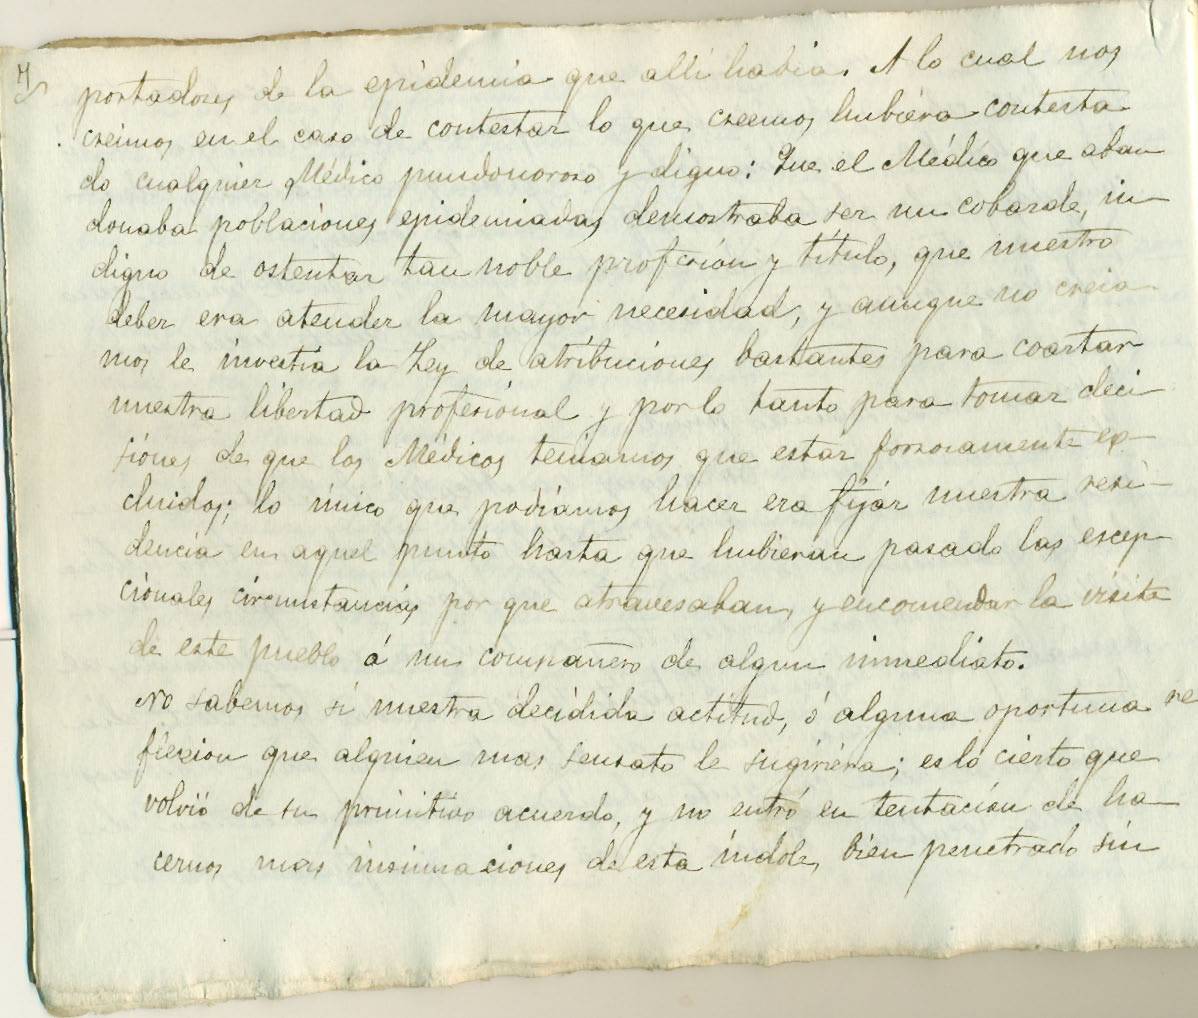 portadores de la epidemia que allí habia. A lo cual nos
creimos en el caso de contestar lo que creemos hubiera contesta
do cualquier Médico pundonoroso y digno: Que el Médico que aban
donaba poblaciones epidemiadas demostraba ser un cobarde, in-
digno de ostentar tan noble profesión y título, que nuestro
deber era atender la mayor necesidad, y aunque no creia-
mos le investia la Ley de atribuciones bastantes para coartar
nuestra libertad profesional y por lo tanto para tomar deci-
siones de que los Médicos teníamos que estar forsosamente ex-
cluidos; lo único que podíamos hacer era fijár nuestra resi-
dencia en aquel punto hasta que hubieran pasado las escep-
cionales circunstancias por que atravesaban, y encomendar la visita
de este pueblo á un compañero de algun inmediato.
No sabemos si nuestra decidida actitud, ó alguna oportuna re
flexion que alguien mas sensato le sugiriera; es lo cierto que
volvió de su primitivo acuerdo, y no entró en tentación de ha-
cernos mas insinuaciones de esta índole, bien penetrado sin